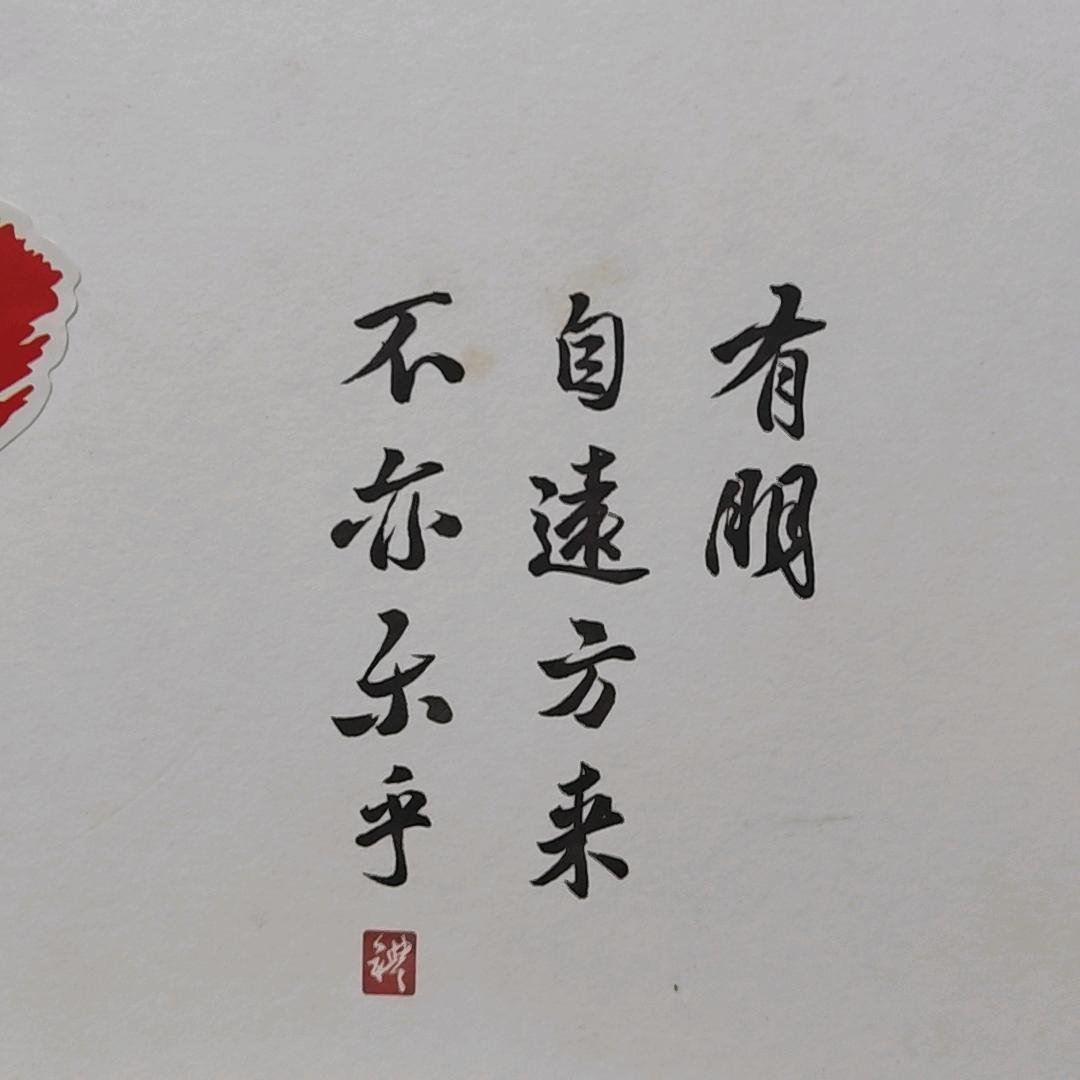 有朋
自遠方来
不亦乐乎
禮